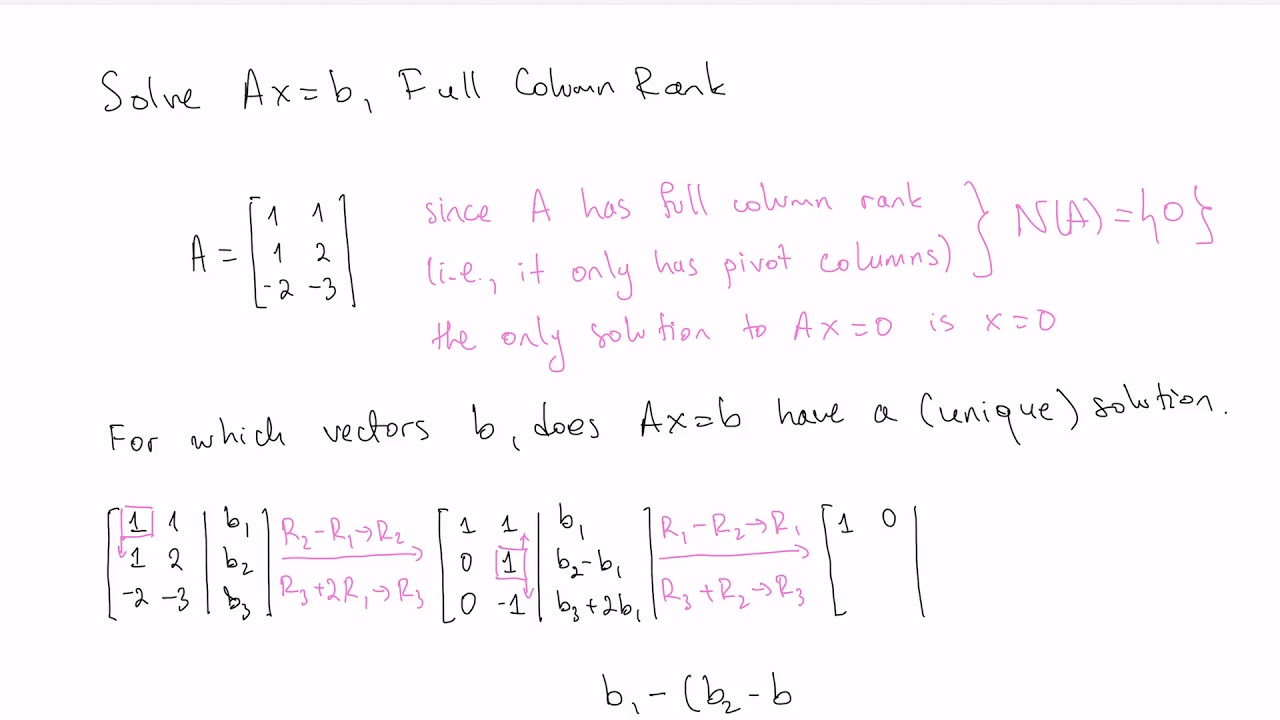 Solve Ax=b, Full Column Rank
A = [1 1; 1 2; -2 -3]
since A has full column rank
(i.e., it only has pivot columns) } N(A) = {0}
the only solution to Ax=0 is x=0
For which vectors b, does Ax=b have a (unique) solution.
[1 1 | b₁; 1 2 | b₂; -2 -3 | b₃] R₂-R₁→R₂ R₃+2R₁→R₃ [1 1 | b₁; 0 1 | b₂-b₁; 0 -1 | b₃+2b₁] R₁-R₂→R₁ R₃+R₂→R₃ [1 0 |
b₁-(b₂-b